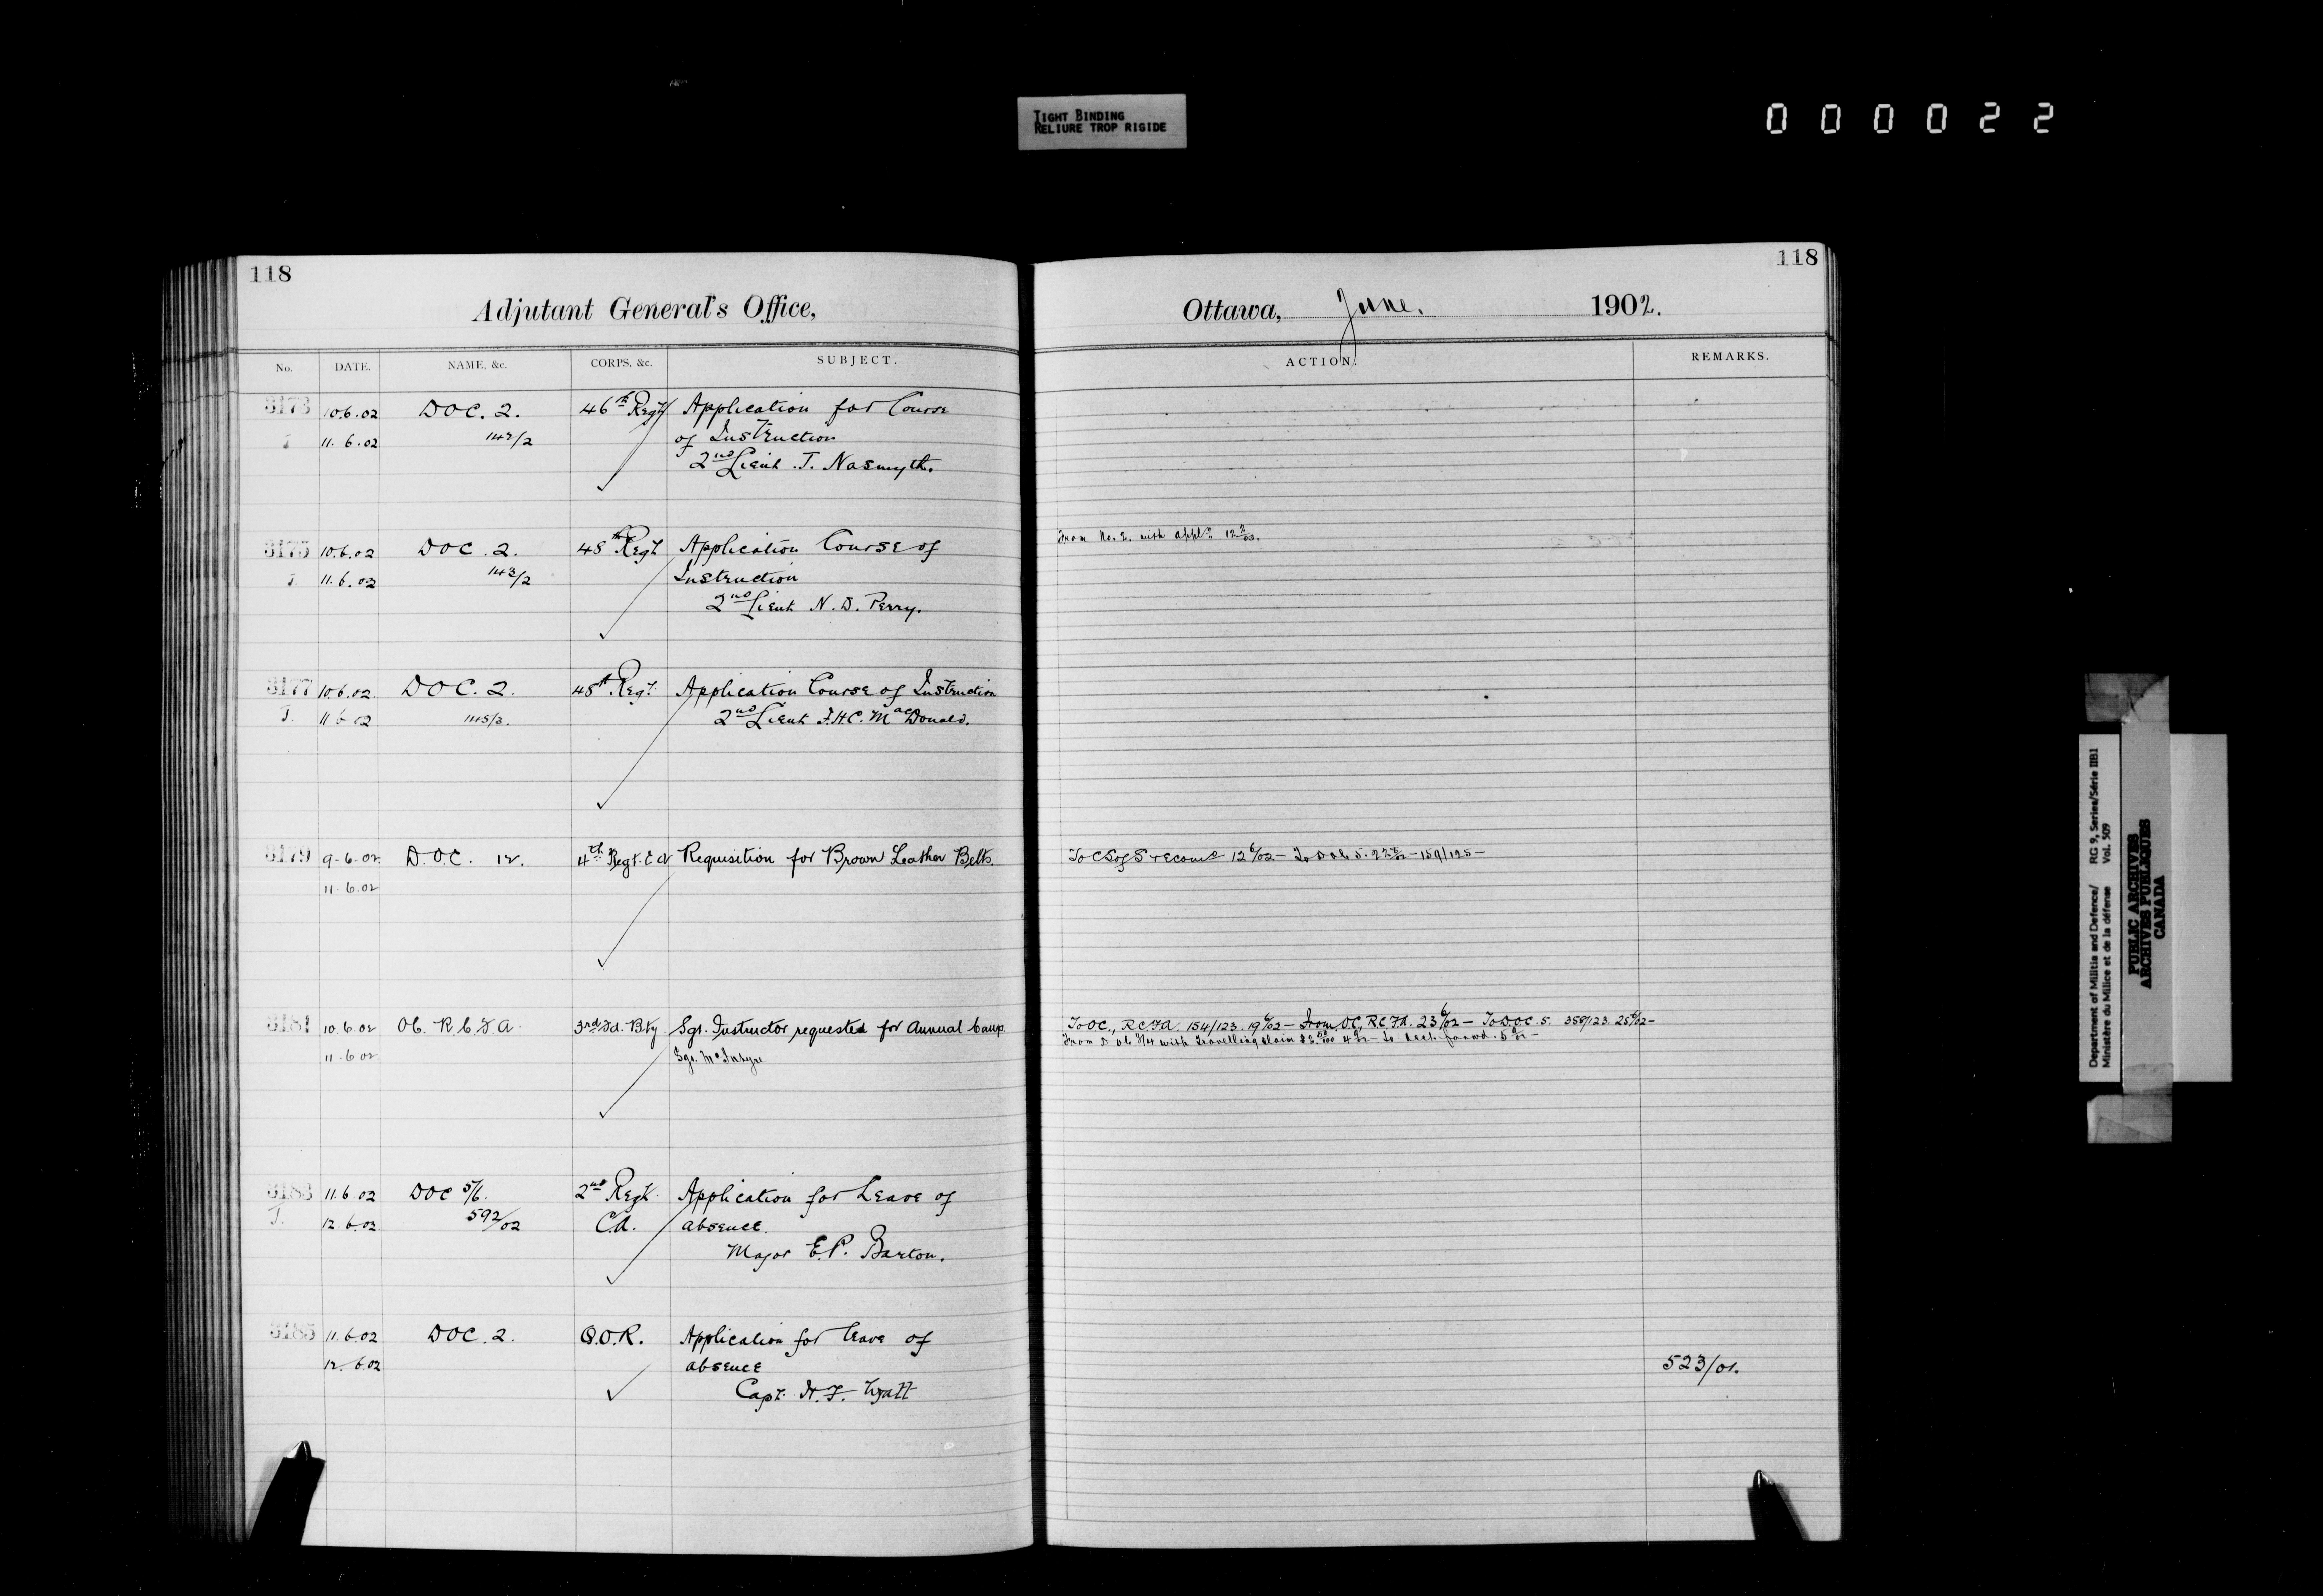 TIGHT BINDING
RELIURE TROP RIGIDE
000022
118
118
Adjutant General's Office,
Ottawa, June. 1902.
No. DATE. NAME, &c. CORPS, &c. SUBJECT. ACTION. REMARKS.
3173 10.6.02 DOC. 2. 46th Regt Application for Course
11.6.02 of Instruction
2nd Lieut. J. Nasmyth.
3175 10.6.02 DOC. 2. 48th Regt Application Course of From No. 2. with appln
J. 11.6.02 Instruction
2nd Lieut N. D. Perry.
3177 10.6.02. DOC. 2. 48th Regt. Application Course of Instruction
J. 11.6.02 2nd Lieut F.H.C. MacDonald.
3179 9-6-02 D.O.C. 12. 4th Regt. C A Requisition for Brown Leather Belts.
11.6.02
3181 10.6.02 OC. R.C.F.A. 3rd Fd. Bty Sgt. Instructor requested for Annual Camp To OC., R.C.F.A. 154/123. 19 6/02 — From OC, R.C.F.A. 23 6/02 — To D.O.C. 5.
11.6.02 Sgt. McIntyre
3183 11.6.02 DOC 5/6. 2nd Regt. Application for Leave of
J. 12.6.02 592/02 C.A. absence.
Major E.P. Barton.
3185 11.6.02 DOC. 2. Q.O.R. Application for leave of
12.6.02 absence 523/01.
Capt. H. F. Wyatt
Department of Militia and Defence/ RG 9, Series/Série IIB1
Ministère du Milice et de la défense Vol. 509
PUBLIC ARCHIVES
ARCHIVES PUBLIQUES
CANADA